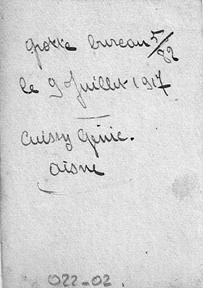 grotte bureau 5/82
le 9 Juillet 1917
Cuissy Genie.
Aisne
022-02.